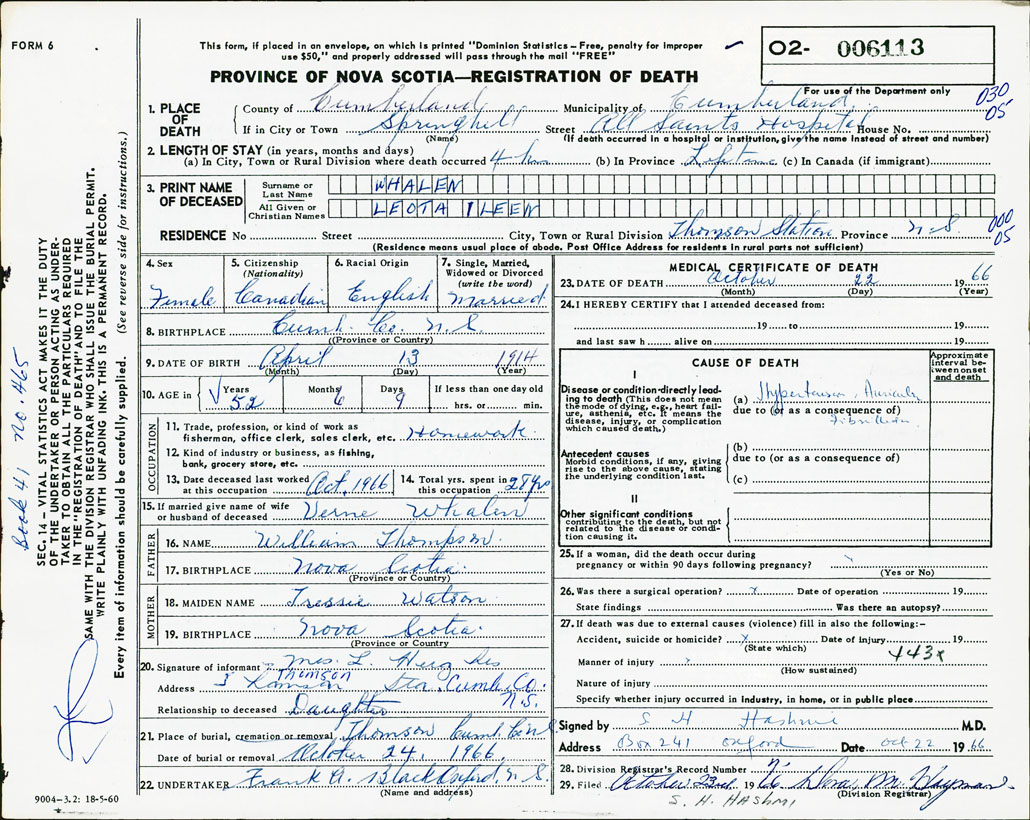 FORM 6
This form, if placed in an envelope, on which is printed "Dominion Statistics—Free, penalty for improper
use $50," and properly addressed will pass through the mail "FREE"
O2- 006113
For use of the Department only
PROVINCE OF NOVA SCOTIA—REGISTRATION OF DEATH
030
05
1. PLACE OF DEATH
County of Cumberland Municipality of Cumberland
If in City or Town Springhill Street All Saints Hospital House No.
(Name) (If death occurred in a hospital or institution, give the name instead of street and number)
2. LENGTH OF STAY (in years, months and days)
(a) In City, Town or Rural Division where death occurred 4 hrs (b) In Province Lifetime (c) In Canada (if immigrant)
3. PRINT NAME OF DECEASED
Surname or Last Name WHALEN
All Given or Christian Names LEOTA ILEEN
RESIDENCE No Street City, Town or Rural Division Thomson Station Province N.S.
000
05
(Residence means usual place of abode. Post Office Address for residents in rural parts not sufficient)
4. Sex
Female
5. Citizenship (Nationality)
Canadian
6. Racial Origin
English
7. Single, Married, Widowed or Divorced (write the word)
Married
8. BIRTHPLACE Cumb. Co. N.S.
(Province or Country)
9. DATE OF BIRTH April 13 1914
(Month) (Day) (Year)
10. AGE in Years 52 Months 6 Days 9 If less than one day old hrs. or min.
OCCUPATION
11. Trade, profession, or kind of work as
fisherman, office clerk, sales clerk, etc. Homework
12. Kind of industry or business, as fishing,
bank, grocery store, etc.
13. Date deceased last worked at this occupation Oct. 1966
14. Total yrs. spent in this occupation 28 yrs
15. If married give name of wife or husband of deceased Verne Whalen
FATHER
16. NAME William Thompson
17. BIRTHPLACE Nova Scotia
(Province or Country)
MOTHER
18. MAIDEN NAME Tressie Watson
19. BIRTHPLACE Nova Scotia
(Province or Country
20. Signature of informant Mrs. L.
Address Thomson Sta. Cumb. Co. N.S.
Relationship to deceased Daughter
21. Place of burial, cremation or removal Thomson Cumb. Co. N.S.
Date of burial or removal October 24, 1966
22. UNDERTAKER Frank A. Black Oxford, N.S.
(Name and address)
MEDICAL CERTIFICATE OF DEATH
23. DATE OF DEATH October 22 1966
(Month) (Day) (Year)
24. I HEREBY CERTIFY that I attended deceased from:
19 to 19
and last saw h alive on 19
CAUSE OF DEATH
Approximate interval between onset and death
I
Disease or condition directly leading to death (This does not mean the mode of dying, e.g., heart failure, asthenia, etc. It means the disease, injury, or complication which caused death.)
(a) Hypertension, Auricular
due to (or as a consequence of)
Fibrillation
Antecedent causes
Morbid conditions, if any, giving rise to the above cause, stating the underlying condition last.
(b)
due to (or as a consequence of)
(c)
II
Other significant conditions
contributing to the death, but not related to the disease or condition causing it.
25. If a woman, did the death occur during
pregnancy or within 90 days following pregnancy?
(Yes or No)
26. Was there a surgical operation? x Date of operation 19
State findings Was there an autopsy?
27. If death was due to external causes (violence) fill in also the following:—
Accident, suicide or homicide? x Date of injury 19
(State which)
443x
Manner of injury
(How sustained)
Nature of injury
Specify whether injury occurred in industry, in home, or in public place
Signed by S H Hashmi M.D.
Address Box 241 Oxford Date Oct 22 1966
28. Division Registrar's Record Number
29. Filed October 22nd 1966 M. Hayman
(Division Registrar)
S. H. HASHMI
9004-3.2: 18-5-60
Book 41 No. 465
SEC. 14—VITAL STATISTICS ACT MAKES IT THE DUTY
OF THE UNDERTAKER OR PERSON ACTING AS UNDER-
TAKER TO OBTAIN ALL THE PARTICULARS REQUIRED
IN THE "REGISTRATION OF DEATH" AND TO FILE THE
SAME WITH THE DIVISION REGISTRAR WHO SHALL ISSUE THE BURIAL PERMIT.
WRITE PLAINLY WITH UNFADING INK. THIS IS A PERMANENT RECORD.
Every item of information should be carefully supplied. (See reverse side for instructions.)